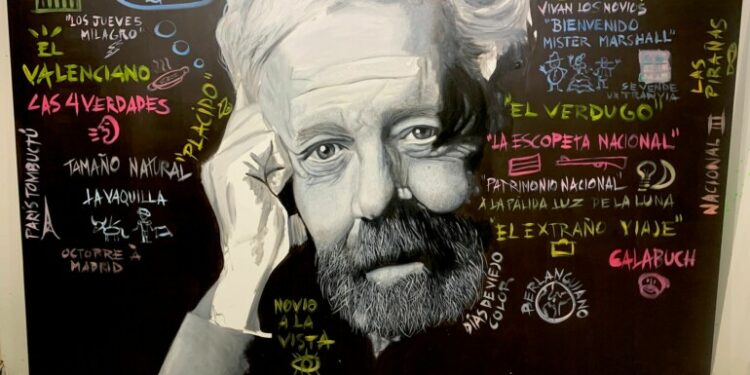 "LOS JUEVES
MILAGRO"
EL
VALENCIANO
LAS 4 VERDADES
"PLÁCIDO"
TAMAÑO NATURAL
LA VAQUILLA
PARIS TOMBUCTÚ
OCTOPRE À
MADRID
NOVIO
A LA
VISTA
VIVAN LOS NOVIOS
"BIENVENIDO
MISTER MARSHALL"
SE VENDE
UN TRANVIA
LAS PIRAÑAS
"EL VERDUGO"
"LA ESCOPETA NACIONAL"
"PATRIMONIO NACIONAL"
A LA PÁLIDA LUZ DE LA LUNA
NACIONAL III
"EL EXTRAÑO VIAJE"
CALABUCH
DÍAS DE VIEJO
COLOR
BERLANGUIANO